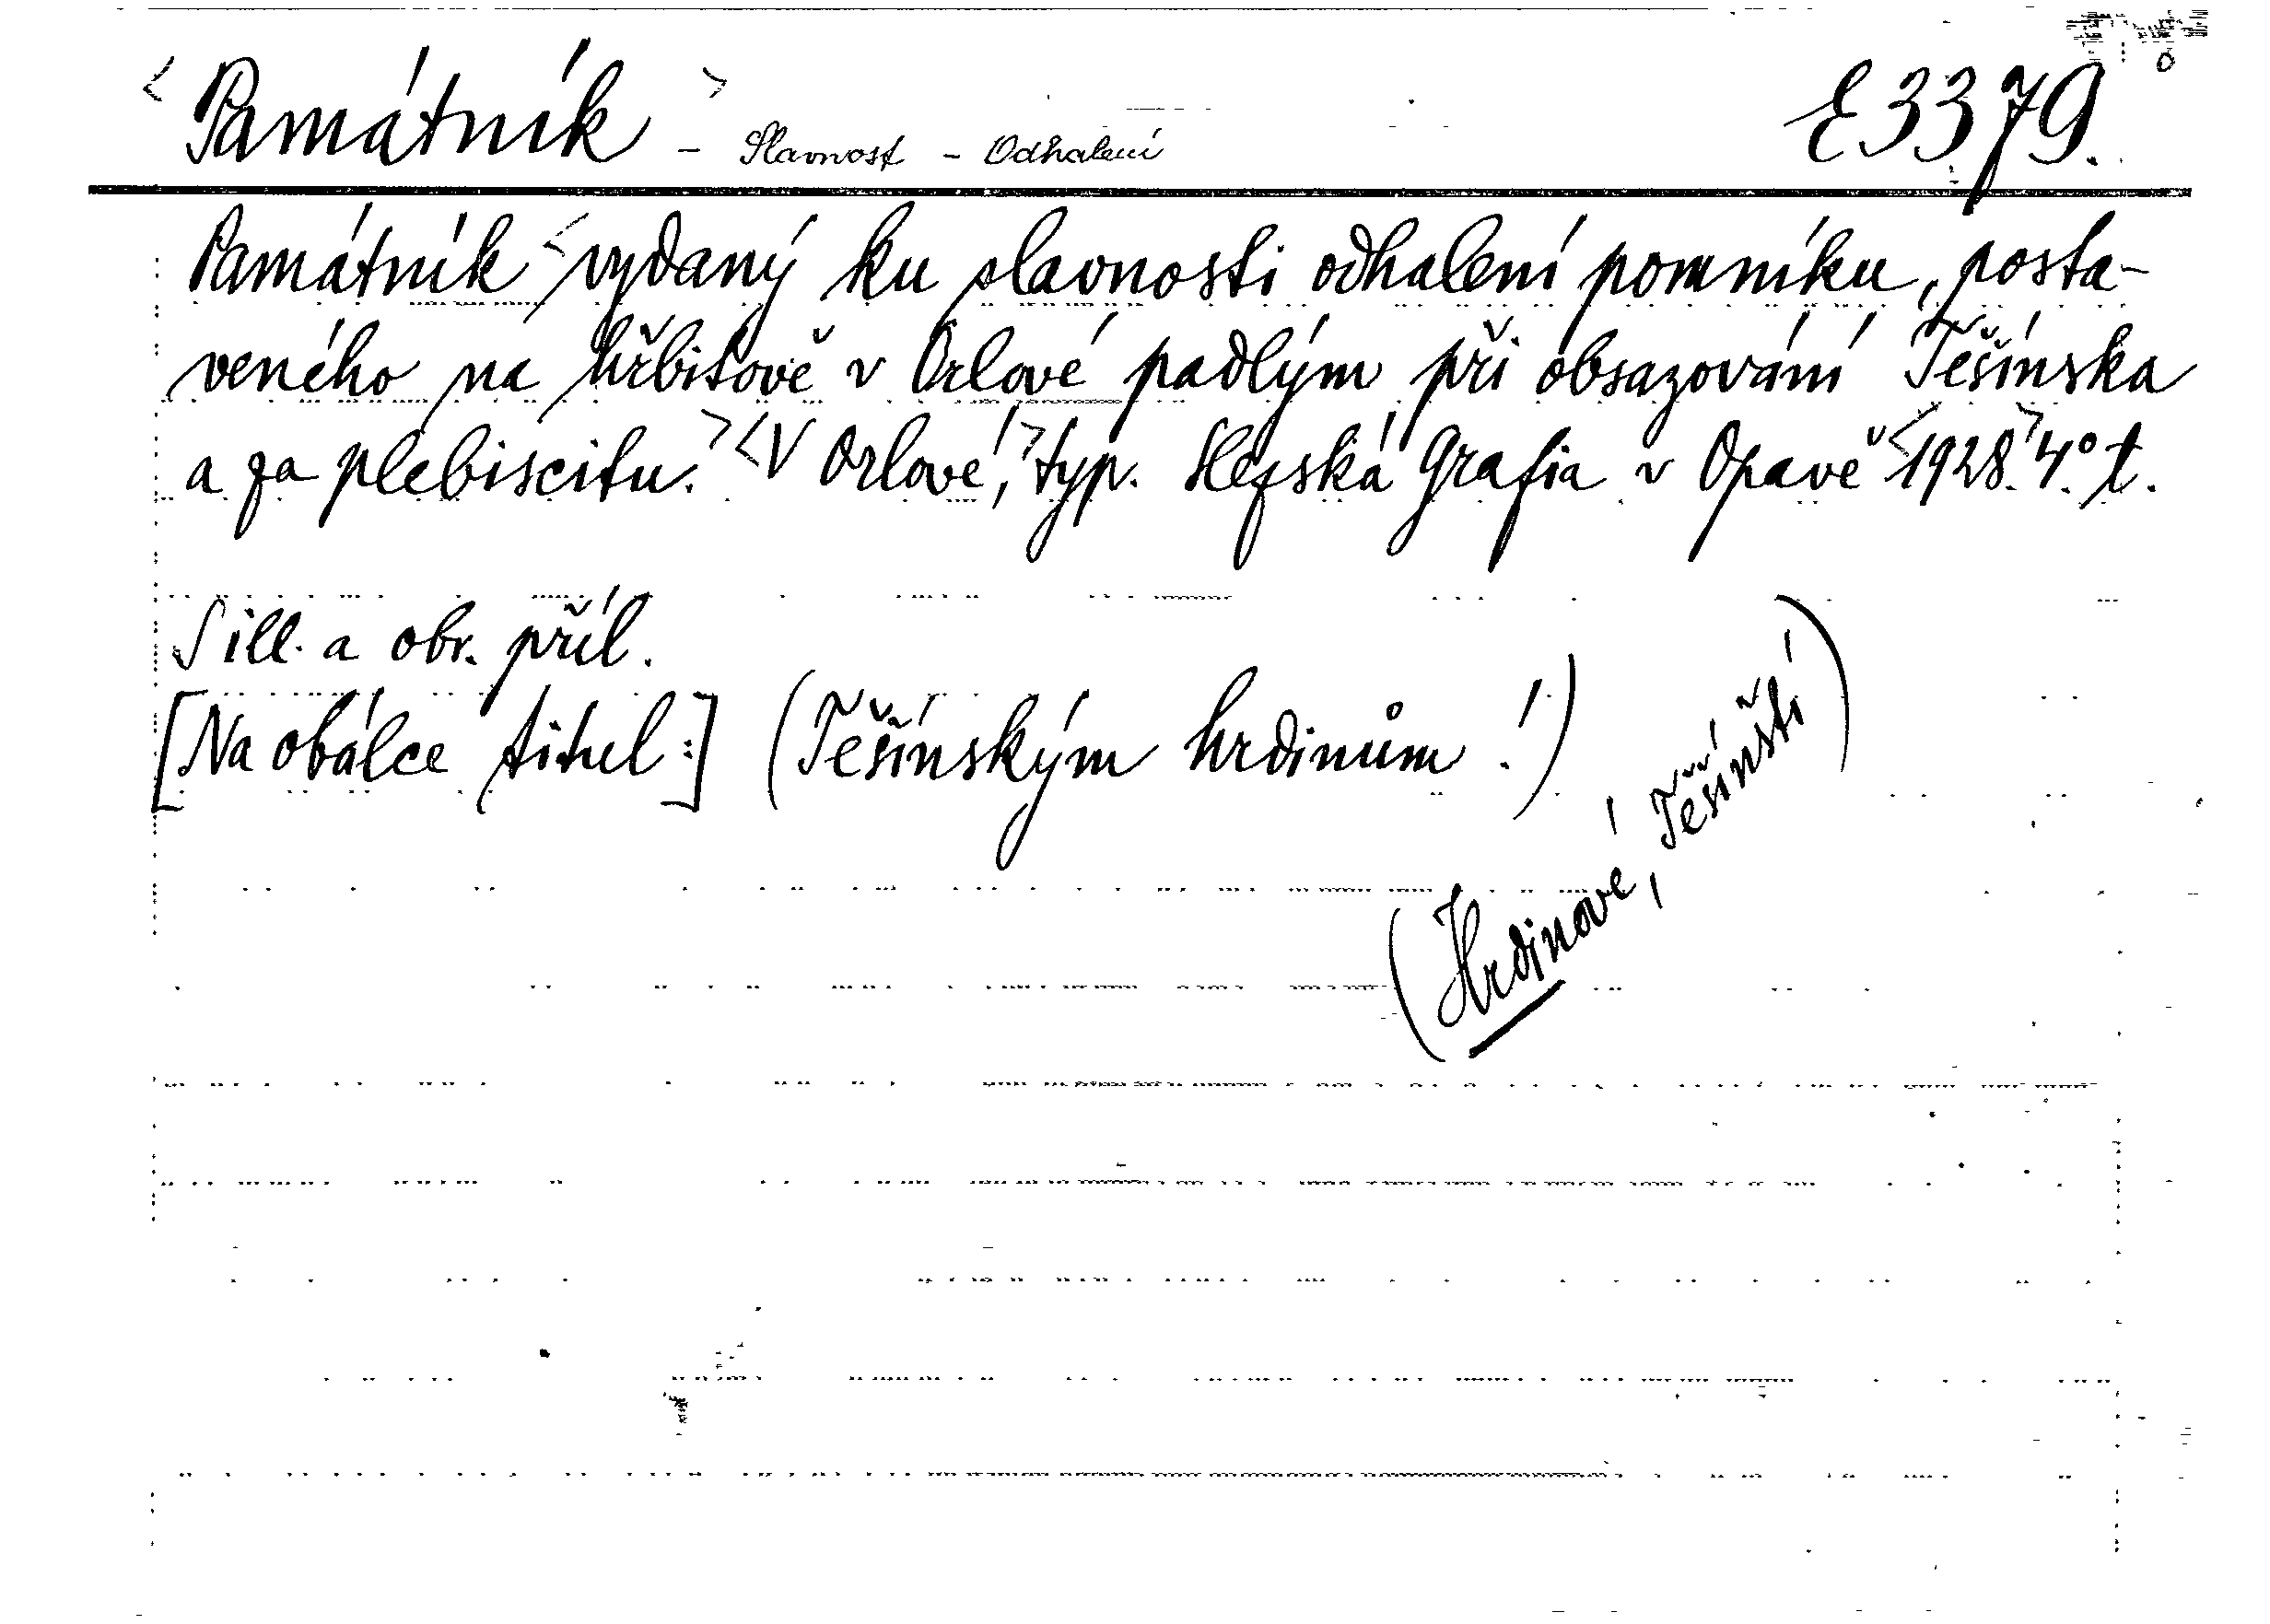 <Památník> - Slavnost - Odhalení E 3379.
Památník <vydaný ku slavnosti odhalení pomníku, posta-
veného na hřbitově v Orlové padlým při obsazování Těšínska
a za plebiscitu.> <V Orlové,> typ. Slezská Grafia v Opavě <1928.> 4° t.
S ill. a obr. příl.
[Na obálce titul:] (Těšínským hrdinům!)
(Hrdinové, Těšínští)